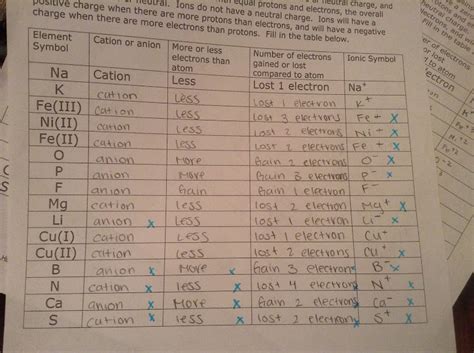 equal protons and electrons, the overall
neutral. Ions do not have a neutral charge. Ions will have a
positive charge when there are more protons than electrons, and will have a negative
charge when there are more electrons than protons. Fill in the table below.
Element Symbol Cation or anion More or less electrons than atom Number of electrons gained or lost compared to atom Ionic Symbol
Na Cation Less Lost 1 electron Na+
K cation Less Lost 1 electron K+
Fe(III) cation Less Lost 3 electrons Fe+ x
Ni(II) cation Less Lost 2 electrons Ni+ x
Fe(II) cation less Lost 2 electrons Fe+ x
O anion More Gain 2 electrons O- x
P anion More Gain 3 electrons P- x
F anion Gain Gain 1 electron F-
Mg cation less lost 2 electron Mg+ x
Li anion x Less lost 1 electron Li- x
Cu(I) cation Less lost 1 electron Cu+
Cu(II) cation less lost 2 electrons Cu+ x
B anion x More x Gain 3 electrons B- x
N cation x less x lost 4 electrons x N+ x
Ca anion x More x Gain 2 electrons x Ca- x
S cation x less x lost 2 electrons x S+ x